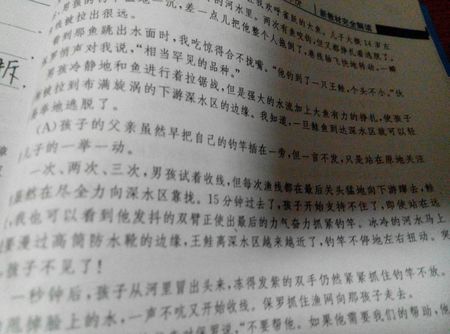 新教材完全解读
男孩的钓竿猛地一沉，差一点儿把他整个人拖倒了，
被拉出很远。
看到那鱼跳出水面时，我吃惊得合不拢嘴。“他钓到了一只王鲑，个头不小。”伙
保罗悄声对我说，“相当罕见的品种。”
男孩冷静地和鱼进行着拉锯战，但是强大的水流加上大鱼有力的挣扎，使孩子
被拉到布满漩涡的下游深水区的边缘。我知道，一旦鲑鱼到达深水区就可以轻
地逃脱了。
(A)孩子的父亲虽然早把自己的钓竿插在一旁，但一言不发，只是站在原地关注
儿子的一举一动。
一次、两次、三次，男孩试着收线，但每次渔线都在最后关头猛地向下游蹿去，鲑
虽然在尽全力向深水区靠拢。15分钟过去了，孩子开始支持不住了，即使站在远
，我也可以看到他发抖的双臂正使出最后的力气奋力抓紧钓竿。冰冷的河水马上
要漫过高筒防水靴的边缘，王鲑离深水区越来越近了，钓竿不停地左右扭动。突
孩子不见了！
一秒钟后，孩子从河里冒出头来，冻得发紫的双手仍然紧紧抓住钓竿不放。
甩掉脸上的水，一声不吭又开始收线。保罗抓住渔网向那孩子走去。
对保罗说，“不要帮他。如果他需要我们的帮助，他
拆